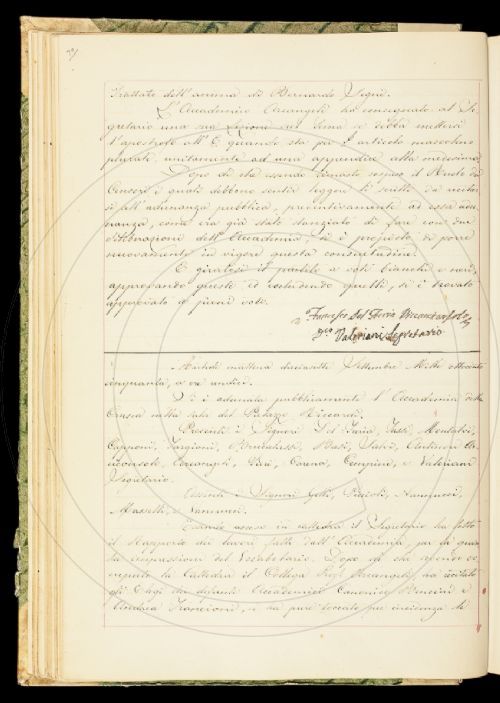 Trattato dell'anima di Bernardo Segni.
L'Accademico Arcangeli ha consegnato al Se-
gretario una sua Lezione sul tema se debba mettersi
l'apostrofo all'E quando sta per articolo mascolino
plurale, unitamente ad una appendice alla medesima.
Dopo di che essendo rimasto sospeso il Ruolo dei
Censori i quali debbono sentir leggere gli scritti da recitar-
si all'adunanza pubblica, preventivamente ad essa adu-
nanza, come era già stato stanziato di fare con due
deliberazioni dell'Accademia, si è proposto di porre
nuovamente in vigore questa consuetudine.
E giratosi il partito a voti bianchi e neri,
approvando questi ed escludendo quelli, si è trovato
approvato a pieni voti.
Francesco Del Furia Vicearciconsolo
Valeriani Segretario
Martedì mattina diciassette Settembre Mille ottocento
cinquanta, a ore undici.
Si è adunata pubblicamente l'Accademia della
Crusca nella sala del Palazzo Riccardi.
Presenti i Signori Del Furia, Tassi, Montalvi,
Capponi, Targioni, Brunalessi, Basi, Salvi,
Arcangeli, Carena, e Valeriani
Segretario.
Assenti i Signori Gelli, Puccoli, Nannucci,
Masselli, e Vannucci.
Quindi asceso in cattedra il Segretario ha fatto
il Rapporto dei lavori fatti dall'Accademia per la quin-
ta impressione del Vocabolario. Dopo di che avendo oc-
cupato la Cattedra il Collega Prof. Arcangeli, ha recitato
gli Elogi dei defunti Accademici Canonico Bencini e
Andrea Francioni, e ha pure toccato per incidenza di